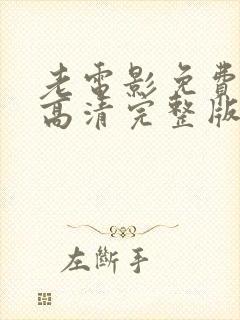 老電影免費
高清完整版
左斷手